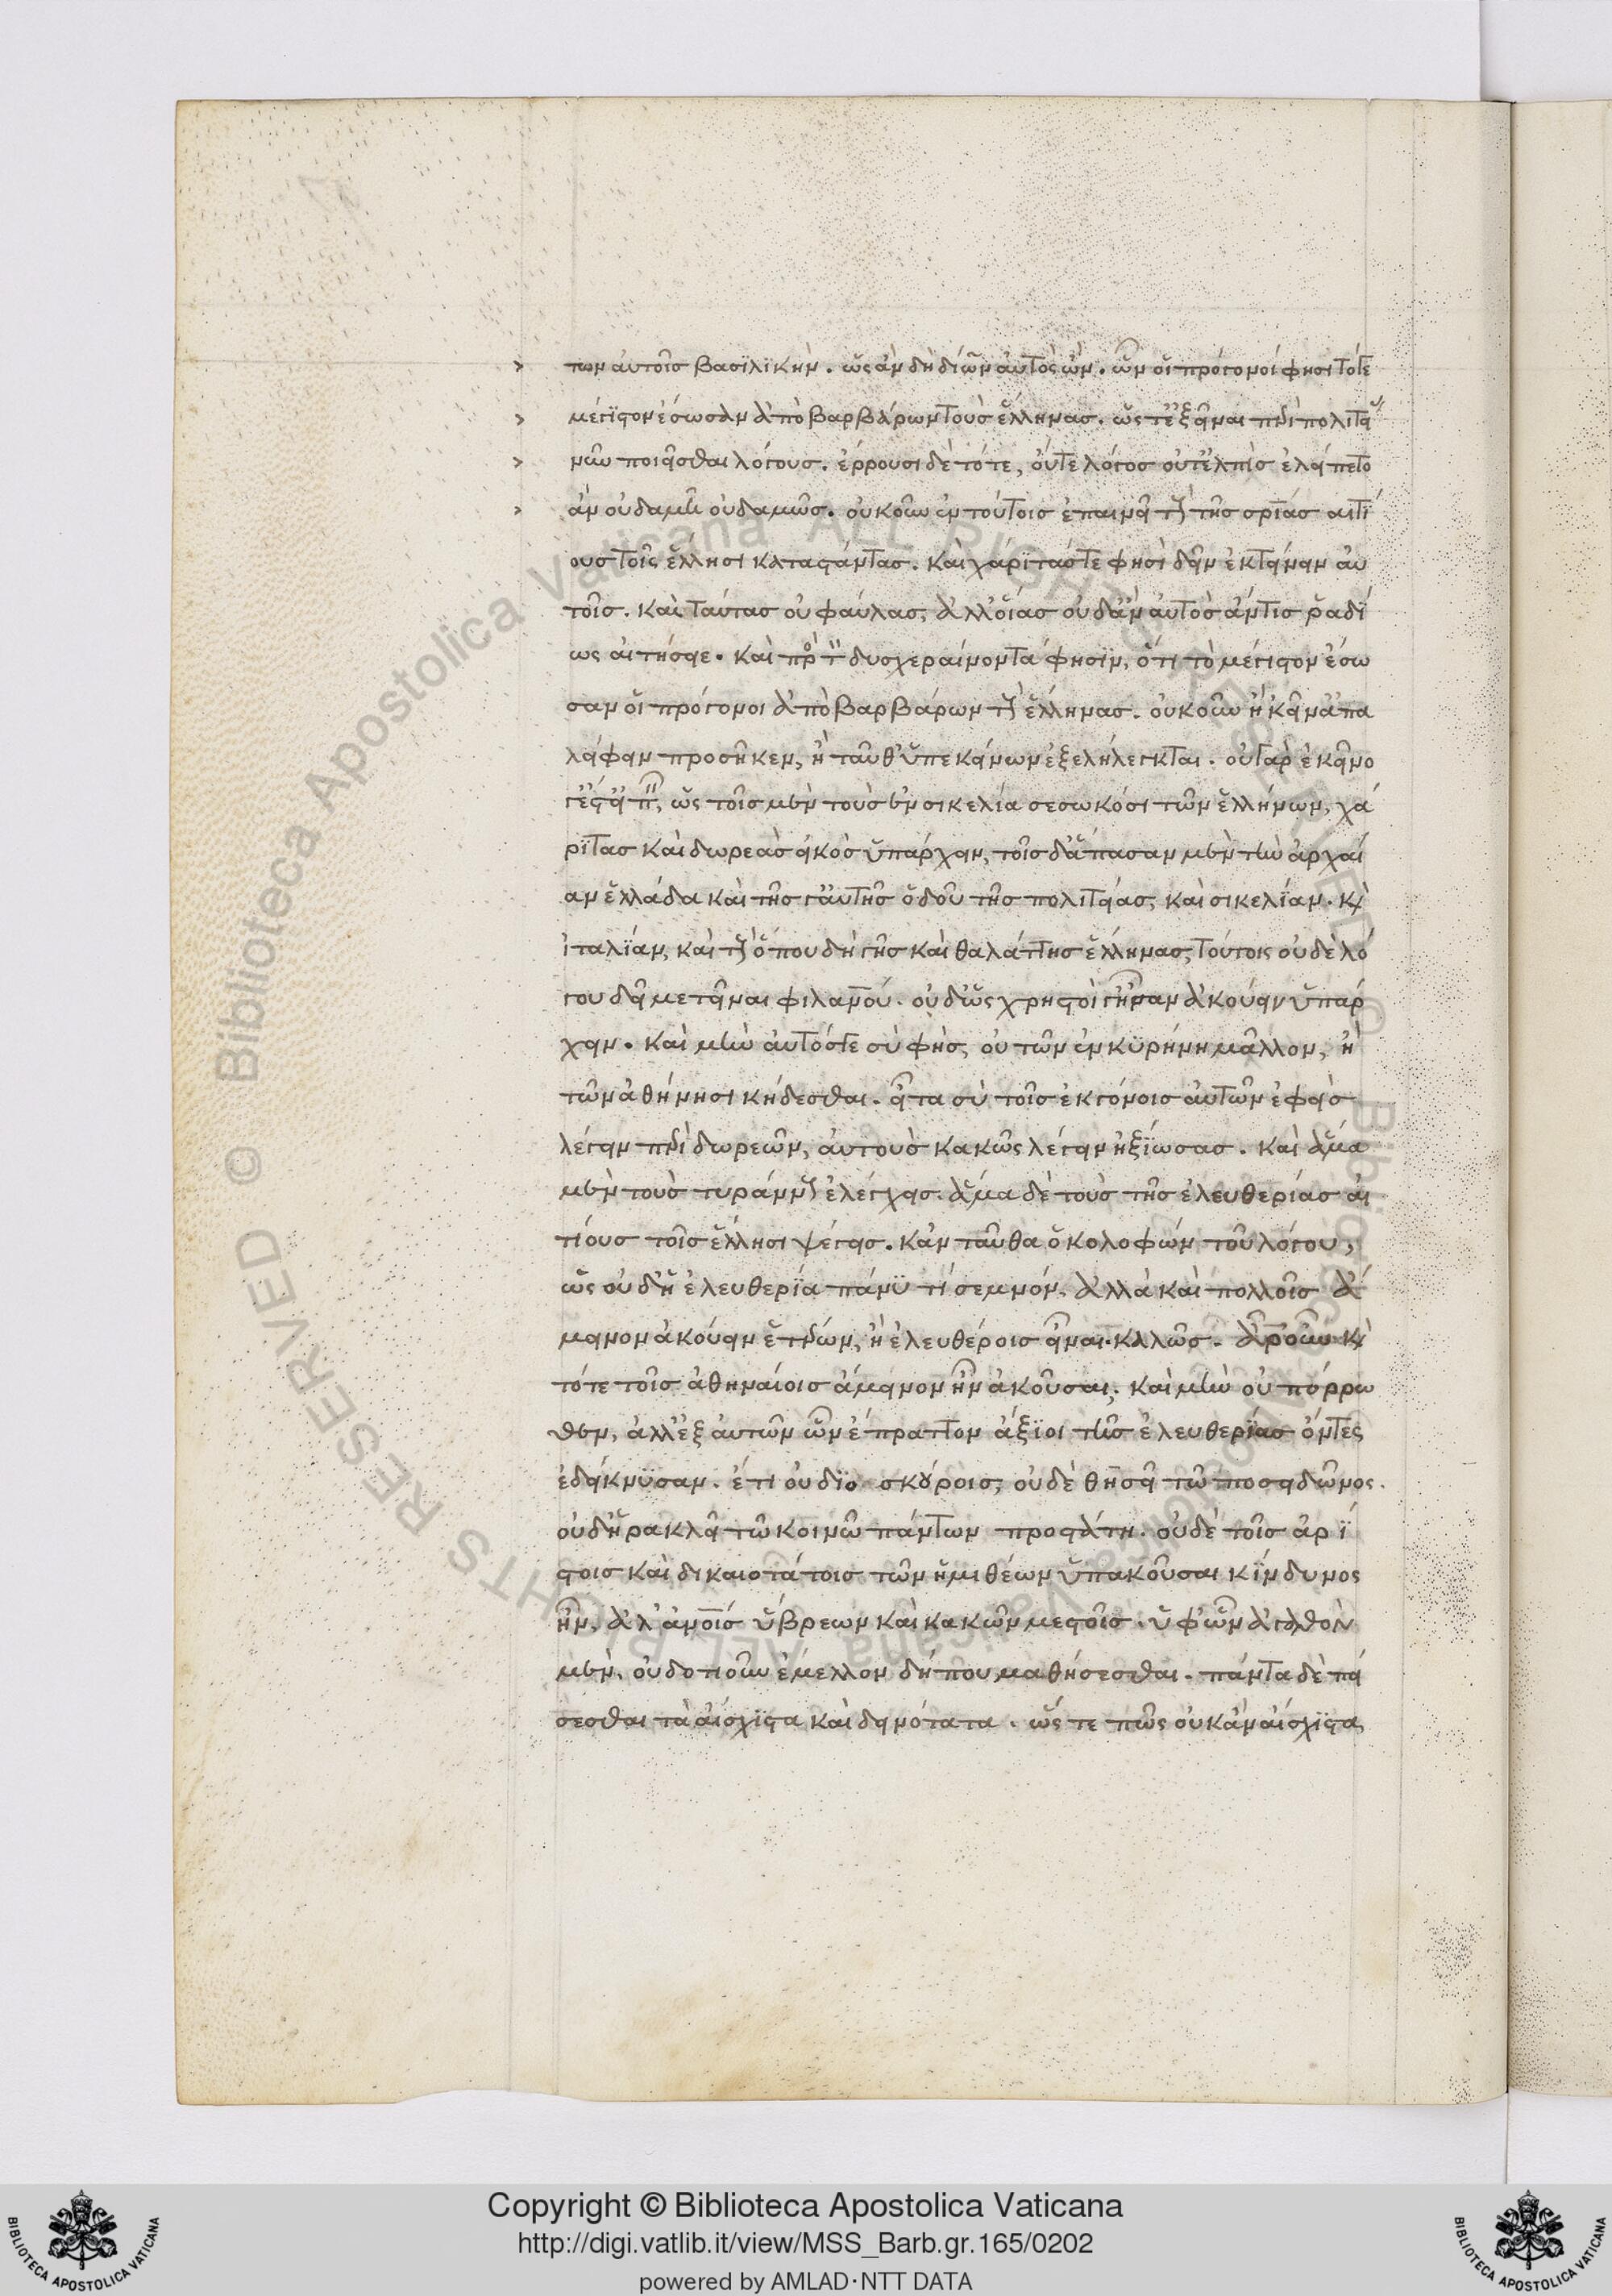 των αὐτοῖς βασϊλϊκὴν. ὡς ἂν δὴ δίων αὐτὸς ὢν. ὧν οἱ πρόγονοί φησι τότε
μέγϊστον ἔσωσαν ἀπὸ βαρβάρων τοὺς ἕλληνας. ὥστ' ἐξεῖναι περὶ πολιτει
νῦν ποιεῖσθαι λόγους. ἔρρουσι δὲ τότε, οὔτε λόγος οὔτ' ἐλπὶς ἐλείπετο
ἂν οὐδαμῆ οὐδαμῶς. οὐκοῦν ἐν τούτοις ἐπαινεῖ τοὺς τῆς σρίας αιτί
ους τοῖς ἕλλησι καταστάντας. καὶ χάριτάς τε φησὶ δεῖν ἐκτείνειν αὐ
τοῖς. καὶ ταύτας οὐ φαύλας, ἀλλ' οἵας οὐδ' ἂν αὐτὸς ἄν τις ῥαδΐ
ως αἰτήσαι. καὶ δυσχεραίνοντα φησϊν, ὅτι τὸ μέγιστον ἔσω
σαν οἱ πρόγονοι ἀπὸ βαρβάρων τοὺς ἕλληνας. οὐκοῦν ἢ κἀκεῖνα ἀπα
λείφειν προσῆκεν, ἢ ταῦθ' ὑπ' ἐκείνων ἐξελήλεγκται. οὐ γὰρ ἐκεῖνο
γ' ἔστ' εἰπεῖν, ὡς τοῖς μὲν τοὺς ἐν σικελία σεσωκόσι τῶν ἑλλήνων, χά
ρϊτας καὶ δωρεὰς εἰκὸς ὑπάρχειν, τοῖς δ' ἅπασαν μὲν τὴν ἀρχαί
αν ἑλλάδα καὶ τῆς γ' αὐτῆς ὁδοῦ τῆς πολιτείας, καὶ σικελίαν. καὶ
ἰταλίαν, καὶ τοὺς ὅπου δὴ γῆς καὶ θαλάττης ἕλληνας, τούτοις οὐδὲ λό
γου δεῖ μετεῖναι φιλανου. οὐδ' ὡς χρηστοὶ γ' ἦσαν ἀκούειν ὑπάρ
χειν. καὶ μὴν αὐτός τε σὺ φὴς, οὐ τῶν ἐν κϋρήνη μᾶλλον, ἢ
τῶν ἀθήνησι κήδεσθαι. εἶτα σὺ τοῖς ἐκγόνοις αὐτῶν ἐφεὶς
λέγειν περὶ δωρεῶν, αὐτοὺς κακῶς λέγειν ἠξίωσας. καὶ ἅμα
μὲν τοὺς τυράννους ἐλέγχεις. ἅμα δὲ τοὺς τῆς ἐλευθερίας αἰ
τίους τοῖς ἕλλησι ψέγεις. κἀνταῦθα ὁ κολοφὼν τοῦ λόγου,
ὡς οὐδ' ἡ ἐλευθερΐα πάνϋ τί σεμνὸν. ἀλλὰ καὶ πολλοῖς ἄ
μεινον ἀκούειν ἑτέρων, ἢ ἐλευθέροις εἶναι. καλῶς. ἆρ' οὖν καὶ
τότε τοῖς ἀθηναίοις ἄμεινον ἦν ἀκοῦσαι, καὶ μὴν οὐ πόρρω
θεν, ἀλλ' ἐξ αὐτῶν ὧν ἔπραττον ἄξϊοι τῆς ἐλευθερϊας ὄντες
ἐδείκνϋσαν. ἔτι οὐ δϊοσκούροις, οὐδὲ θησεῖ τῶ ποσειδῶνος.
οὐδ' ἡρακλεῖ τῶ κοινῶ πάντων προστάτη. οὐδὲ τοῖς ἀρΐ
στοις καὶ δικαιοτάτοις τῶν ἡμιθέων ὑπακοῦσαι κΐνδυνος
ἦν, ἀλλ' ἀνοῖς ὕβρεων καὶ κακῶν μεστοῖς. ὑφ' ὧν ἀγαθὸν
μὲν, οὐδ' ὁτιοῦν ἔμελλον δήπου μαθήσεσθαι. πάντα δὲ πεί
σεσθαι τὰ αἴσχϊστα καὶ δεινότατα. ὥστε πῶς οὐκ ἂν αἴσχϊστα